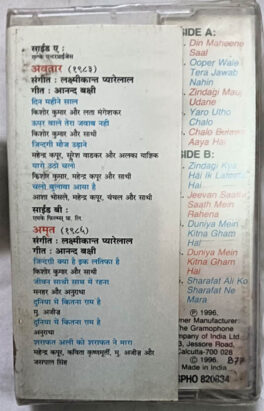 साईड ए :
अवतार (१९८३)
संगीत : लक्ष्मीकांत प्यारेलाल
गीत : आनन्द बक्षी
दिन महीने साल
किशोर कुमार और लता मंगेशकर
ऊपर वाले तेरा जवाब नहीं
किशोर कुमार और साथी
जिन्दगी मौज उड़ाने
महेन्द्र कपूर, सुरेश वाडकर और अलका याज्ञिक
यारो उठो चलो
किशोर कुमार, महेन्द्र कपूर और साथी
चलो बुलावा आया है
आशा भोसले, महेन्द्र कपूर, चंचल और साथी
साईड बी :
अमृत (१९८६)
संगीत : लक्ष्मीकांत प्यारेलाल
गीत : आनन्द बक्षी
जिन्दगी क्या है इक लतिफा है
किशोर कुमार और साथी
जीवन साथी साथ में रहना
मनहर और अनुराधा
दुनिया में कितना ग़म है
मु. अजीज़
दुनिया में कितना ग़म है
अनुराधा
शराफत अली को शराफत ने मारा
महेन्द्र कपूर, कविता कृष्णमूर्ती, मु. अजीज़ और
जसपाल सिंह
SIDE A:
Din Maheene
Saal
Ooper Wale
Tera Jawab
Nahin
Zindagi Mauj
Udane
Yaro Utho
Chalo
Chalo Belawa
Aaya Hai
SIDE B:
Zindagi Kya
Hai Ik Latifa
Hai
Jeevan Saathi
Saath Mein
Rahena
Duniya Mein
Kitna Gham
Hai
Duniya Mein
Kitna Gham
Hai
Sharafat Ali Ko
Sharafat Ne
Mara
℗ 1996.
The Gramophone
Company of India Ltd.
Jessore Road,
Calcutta-700 028
© 1996.